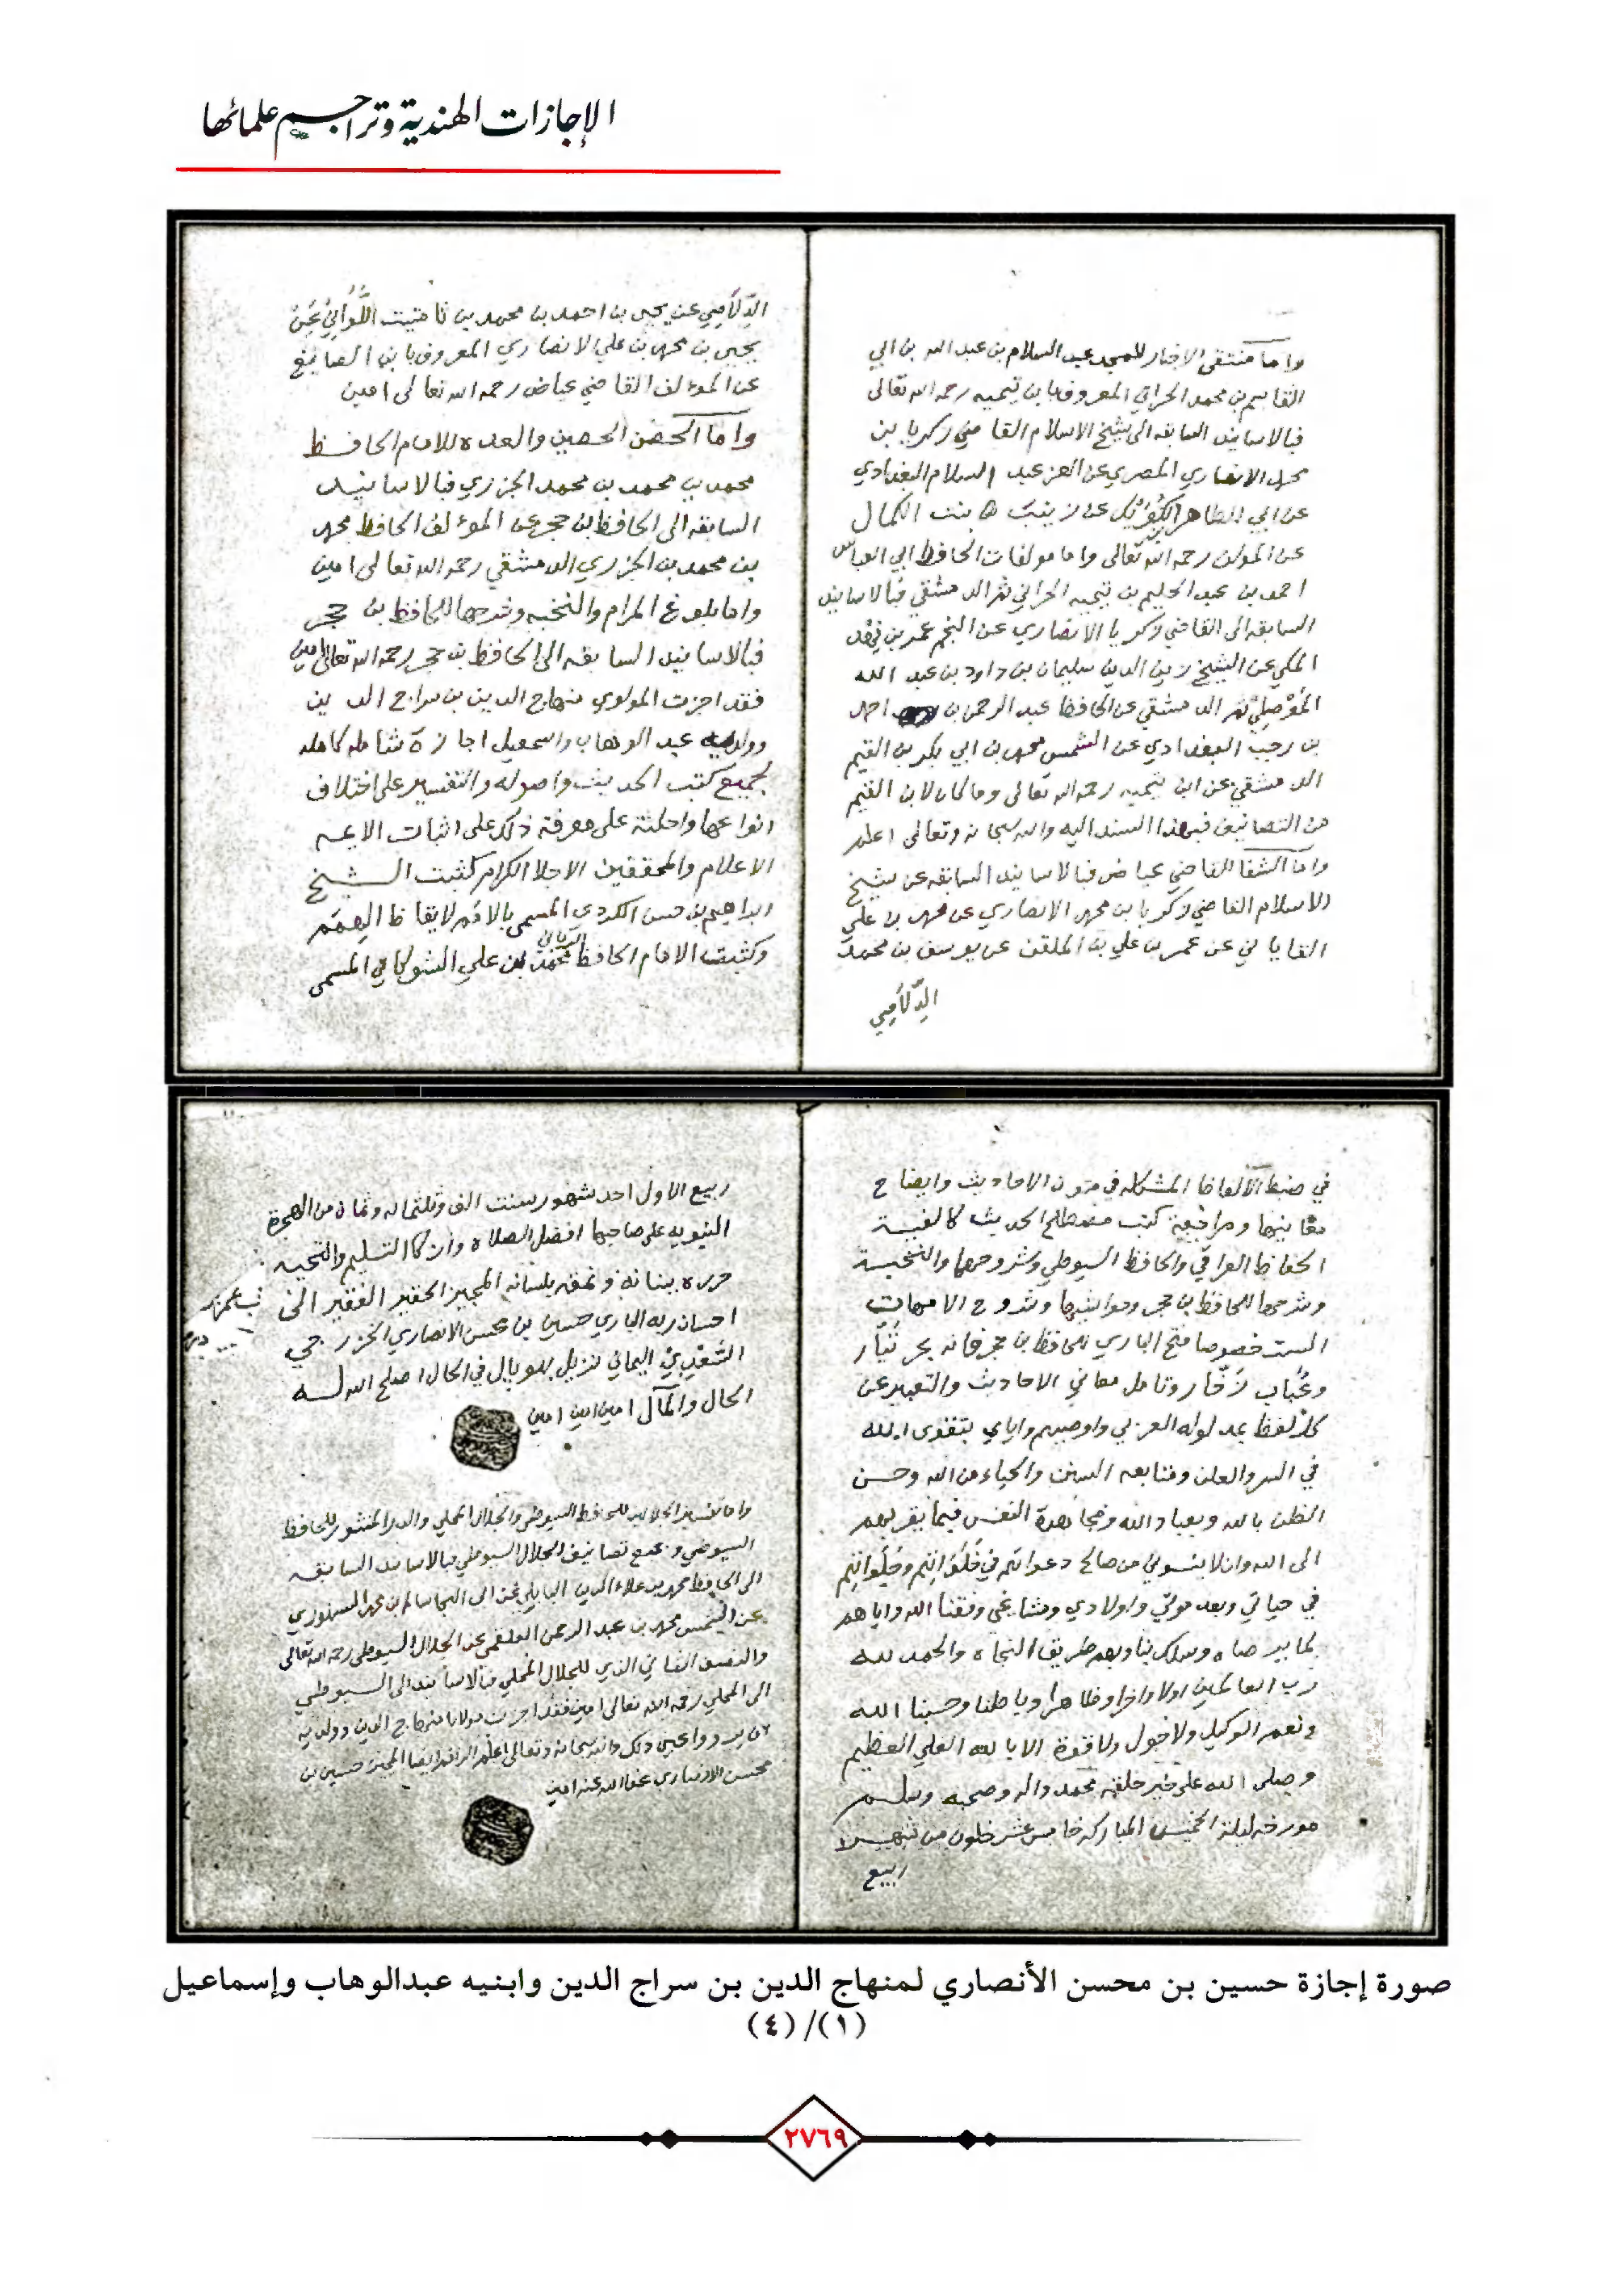 الإجازات الهندية وتراجم علمائها
واما منتقى الاخبار للمجد عبد السلام بن عبد الله بن ابي
القاسم بن محمد الحراني المعروف بابن تيميه رحمه الله تعالى
فبالاسانيد السابقه الى شيخ الاسلام القاضي زكريا بن
محمد الانصاري المصري عن العز عبد السلام البغدادي
عن ابي الطاهر بن الكويك عن زينب بنت الكمال
عن المولف رحمه الله تعالى واما مولفات الحافظ ابي العباس
احمد بن عبد الحليم بن تيميه الحراني ثم الدمشقي فبالاسانيد
السابقه الى القاضي زكريا الانصاري عن النجم عمر بن فهد
المكي عن الشيخ زين الدين سليمان بن داود بن عبد الله
الموصلي ثم الدمشقي عن الحافظ عبد الرحمن بن احمد
بن رجب البغدادي عن الشمس محمد بن ابي بكر بن القيم
الدمشقي عن ابن تيميه رحمه الله تعالى وما كان لابن القيم
من التصانيف فبهذا السند اليه والله سبحانه وتعالى اعلم
واما الشفا للقاضي عياض فبالاسانيد السابقه عن شيخ
الاسلام القاضي زكريا بن محمد الانصاري عن محمد بن علي
القاياتي عن عمر بن علي بن الملقن عن يوسف بن محمد
الدِّلَاصِي
الدِّلَاصِي عن يحيى بن احمد بن محمد بن تامتيت اللَّوَاتِي عَنْ
يحيى بن محمد بن علي الانصاري المعروف بابن الصايغ
عن المؤلف القاضي عياض رحمه الله تعالى امين
واما الحصن الحصين والعده للامام الحافظ
محمد بن محمد بن محمد الجزري فبالاسانيد
السابقه الى الحافظ بن حجر عن المؤلف الحافظ محمد
بن محمد بن الجزري الدمشقي رحمه الله تعالى امين
واما بلوغ المرام والنخبه وشرحها للحافظ بن حجر
فبالاسانيد السابقه الى الحافظ بن حجر رحمه الله تعالى امين
فقد اجزت المولوي منهاج الدين بن سراج الدين
وولديه عبد الوهاب واسمعيل اجازة شامله كامله
لجميع كتب الحديث واصوله والتفسير على اختلاف
انواعها واحلته على معرفة ذلك على اثبات الايمه
الاعلام والمحققين الاجلا الكرام كثبت الشيخ
ابراهيم بن حسن الكردي المسمى بالامم لايقاظ الهمم
وكثبت الامام الحافظ الرباني محمد بن علي الشوكاني المسمى
في ضبط الالفاظ المشكله في متون الاحاديث وايضاح
معانيها ومراجعة كتب مصطلح الحديث كالفية
الحفاظ العراقي والحافظ السيوطي وشروحهما والنخبة
وشرحها للحافظ بن حجر وحواشيها وشروح الامهات
الست خصوصا فتح الباري للحافظ بن حجر فانه بحر تيَّار
وعُباب زخّار وتامل معاني الاحاديث والتعبير عن
كل لفظ بمدلوله العربي واوصيهم واياي بتقوى الله
في السر والعلن ومتابعه السنن والحياء من الله وحسن
الظن بالله وبعباد الله ومجاهدة النفس فيما يقربهم
الى الله وان لا ينسوني من صالح دعواتهم في خَلَوَاتِهم وجَلَوَاتِهم
في حياتي وبعد موتي واولادي ومشايخي وفقنا الله واياهم
لما يرضاه وسلك بنا وبهم طريق النجاه والحمد لله
رب العالمين اولا واخرا وظاهرا وباطنا وحسبنا الله
ونعم الوكيل ولا حول ولا قوة الا بالله العلي العظيم
وصلى الله على خير خلقه محمد واله وصحبه وسلم
مورخه ليلة الخميس المباركه خامس عشر خلون من شهر
ربيع
ربيع الاول احد شهور سنت الف وثلثمائه وثمان من الهجرة
النبويه على صاحبها افضل الصلاه وازكى التسليم والتحيه
حرره ببنانه ونمقه بلسانه المجيز الحقير الفقير الى
احسان ربه الباري حسين بن محسن الانصاري الخزرجي
السَّعْدِيْ اليماني نزيل بهوبال في الحال اصلح الله له
الحال والمآل امين امين امين
واما تفسير الجلالين للحافظ السيوطي والجلال المحلي والدر المنثور للحافظ
السيوطي وجميع تصانيف الجلال السيوطي فبالاسانيد السابقه
الى الحافظ محمد بن علاء الدين البابلي عن ابي النجا سالم بن محمد السنهوري
عن الشمس محمد بن عبد الرحمن العلقمي عن الجلال السيوطي رحمه الله تعالى
والنصف الثاني الذي للجلال المحلي فبالاسانيد الى السيوطي
الى المحلي رحمه الله تعالى امين فقد اجزت مولانا منهاج الدين وولديه
ان يرووا عني ذلك والله سبحانه وتعالى اعلم الراقم ايضا المجيز حسين بن
محسن الانصاري عفا الله عنه امين
صورة إجازة حسين بن محسن الأنصاري لمنهاج الدين بن سراج الدين وابنيه عبدالوهاب وإسماعيل
(١)/(٤)
٢٧٦٩